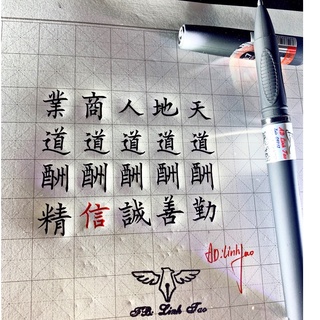 天道酬勤
地道酬善
人道酬誠
商道酬信
業道酬精
AD: Linh Tao
FB: Linh Tao